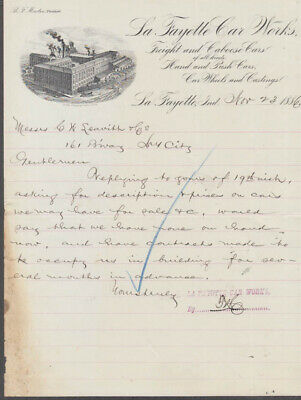 La Fayette Car Works,
Freight and Caboose Cars
of all kinds
Hand and Push Cars,
Car Wheels and Castings
La Fayette, Ind. Nov 23 1886
Messrs C H Leavitt & Co
161 B'way N Y City
Gentlemen
Replying to yours of 19th inst,
asking for description & prices on cars
we may have for sale &c, would
say that we have none on hand
now, and have contracts made
to occupy us in building for sev-
eral months in advance.
Yours truly
LA FAYETTE CAR WORKS,
By